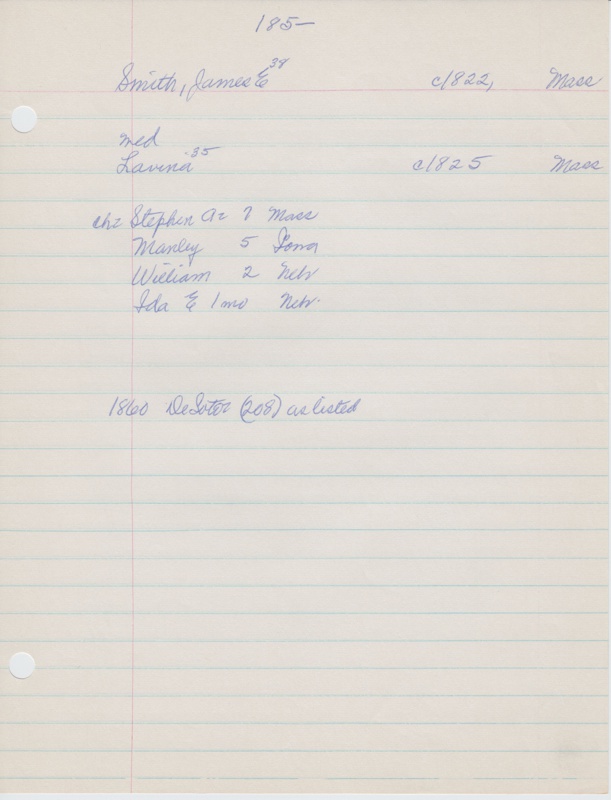 185-
Smith, James E 38 c1822, Mass
med
Lavina 35 c1825 Mass
ch= Stephen A= 7 Mass
Manley 5 Iowa
William 2 Nebr
Ida E 1 mo Nebr.
1860 DeSoto (208) as listed